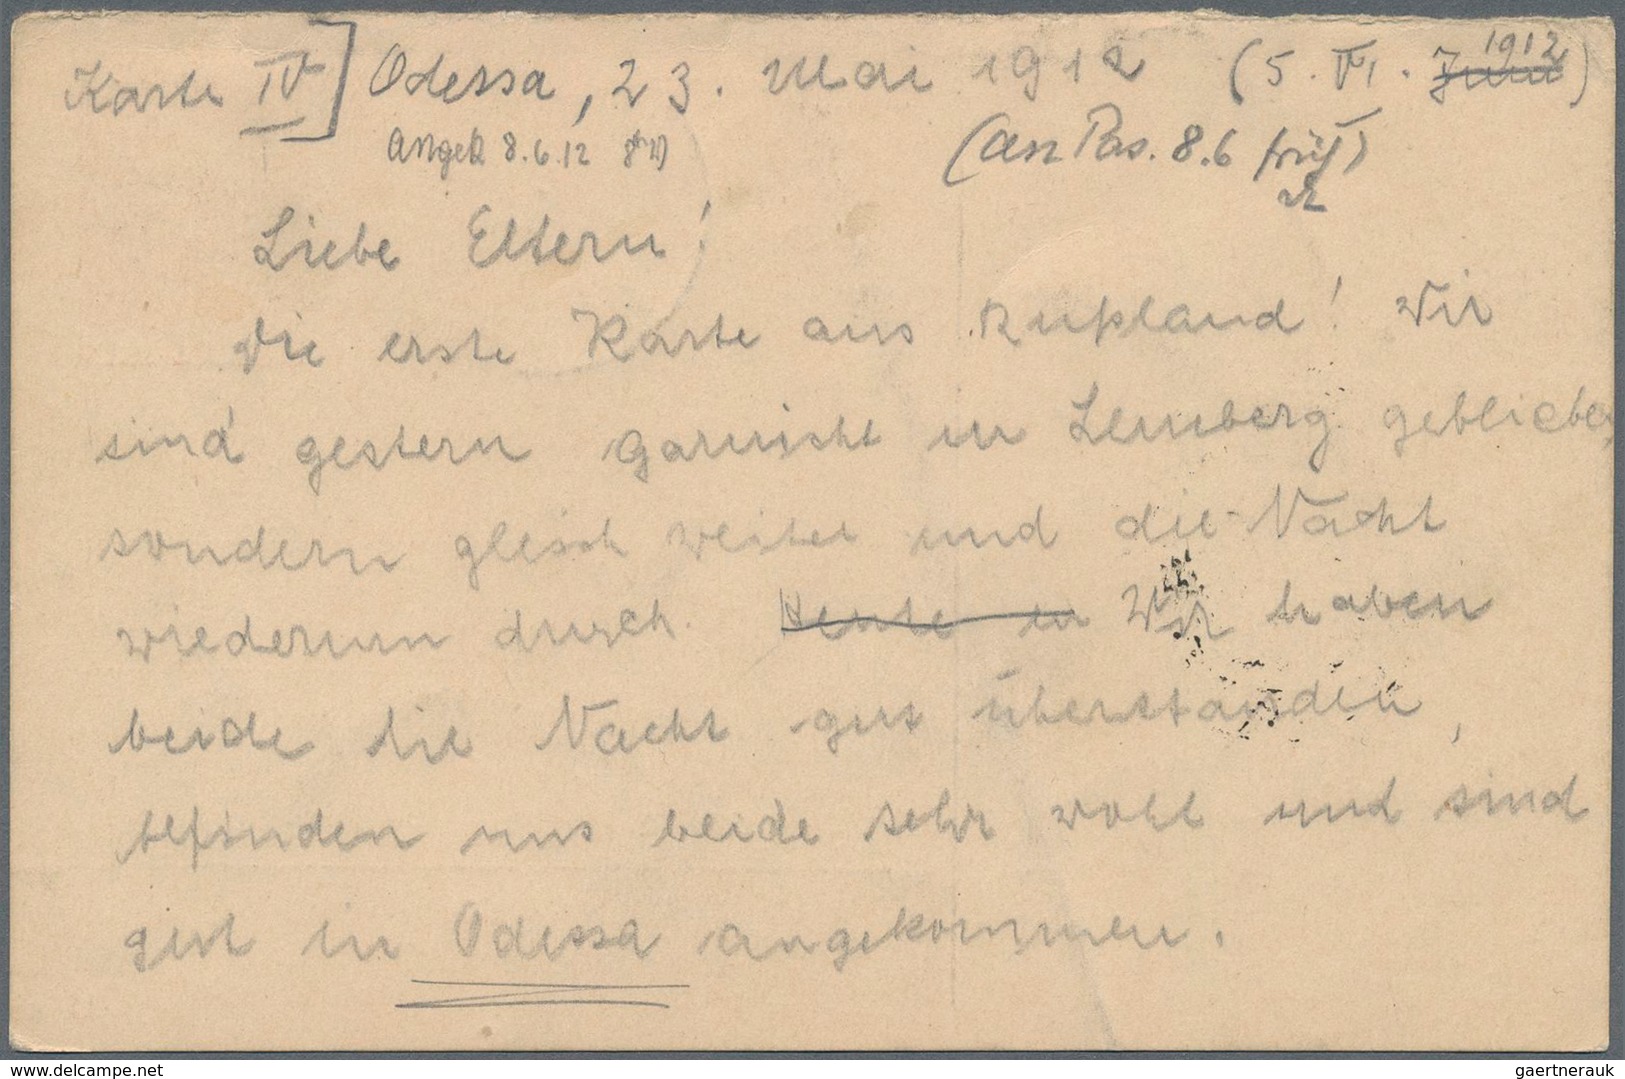 Karte IV] Odessa, 23. Mai 1912 (5. VI. 1912)
Angek 8.6.12 (an Pas. 8.6 früh)
Liebe Eltern!
Die erste Karte aus Rußland! Wir
sind gestern garnicht in Lemberg geblieben,
sondern gleich weiter und die Nacht
wiederum durch. Heute in Wir haben
beide die Nacht gut überstanden,
befinden uns beide sehr wohl und sind
gut in Odessa angekommen.
www.delcampe.net
gaertnerauk